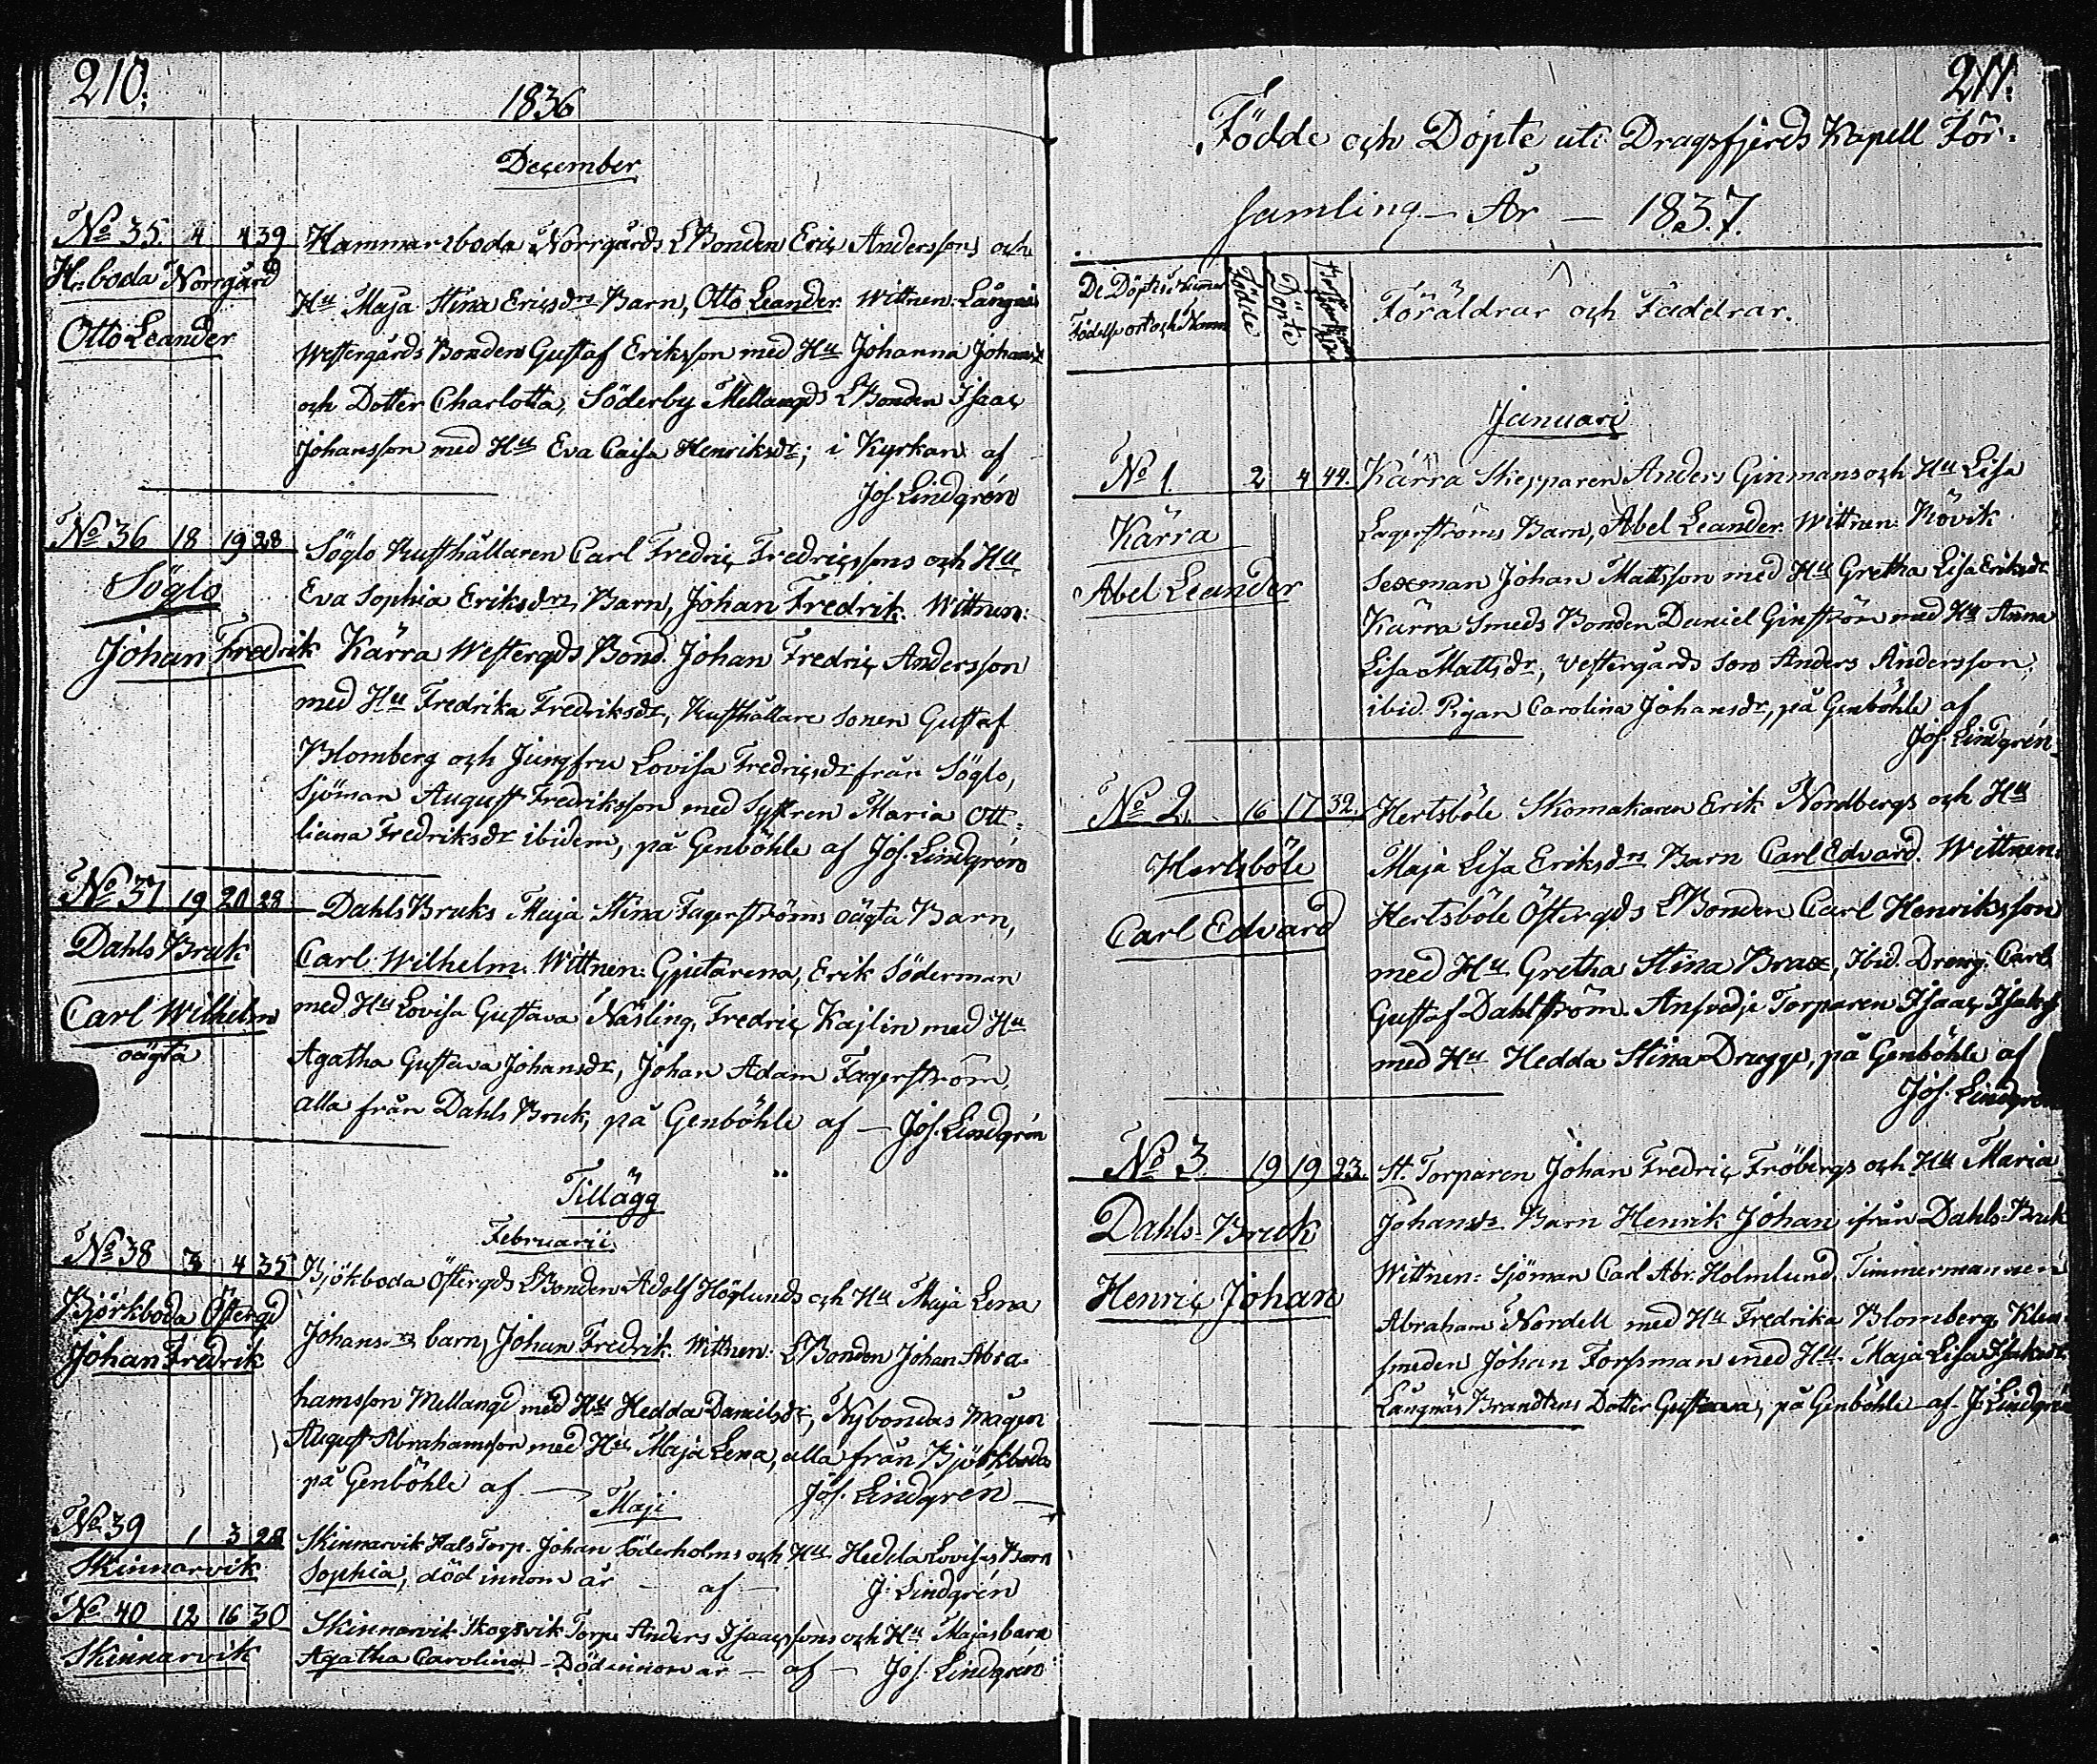 210.
1836
December
No 35. 4. 4 39
Hr. boda Norrgård
Otto Leander
Hammarsboda Norrgårds LBonden Eric Anderssons och
Hu Maja Stina Ericsdrs Barn, Otto Leander. Wittnen: Långnäs
Westergårds Bonden Gustaf Eriksson med Hu Johanna Johansdr
och Dotter Charlotta, Söderby Mellangds LBonden Isaac
Johansson med Hu Eva Caisa Henriksdr; i Kyrkan af
Jos. Lindgrén
No 36 18 19 28
Söglo
Johan Fredrik
Söglo Rusthållaren Carl Fredric Fredricssons och Hu
Eva Sophia Eriksdrs Barn, Johan Fredrik. Wittnen:
Kärra Westergds Bond. Johan Fredric Andersson
med Hu Fredrika Fredriksdr, Rusthållare sonen Gustaf
Blomberg och Jungfru Lovisa Fredricsdr från Söglo,
Sjöman August Fredriksson med Systren Maria Ott-
liana Fredriksdr ibidem, på Genböhle af Jos. Lindgrén
No 37 19 20 28
Dahls Bruk
Carl Wilhelm
oägta
Dahls Bruks Maja Stina Fagerströms oägta Barn,
Carl Wilhelm. Wittnen: Gjutarena, Erik Söderman
med Hu Lovisa Gustava Näsling, Fredric Kajlin med Hu
Agatha Gustava Johansdr, Johan Adam Fagerström,
alla från Dahls Bruk, på Genböhle af — Jos. Lindgrén
Tillägg
Februarii
No 38 3 4 35
Björkboda Östergd
Johan Fredrik
Bjökboda Östergds LBonden Adolf Höglunds och Hu Maja Lena
Johansdrs barn, Johan Fredrik. Wittnen: LBonden Johan Abra-
hamsson Mellangd med Hu Hedda Danielsdr, Nybondas Mågen
August Abrahamsson med Hu Maja Lena, alla från Björkboda
på Genböhle af — Jos. Lindgrén
Maji
No 39 1 3 28
Skinnarvik
Skinnarvik Hals Torp. Johan Söderholms och Hu Hedda Lovisas Barn
Sophia, död innom år — af — J. Lindgrén
No 40 12 16 30
Skinnarvik
Skinnarvik Skogsvik Torp. Anders Isaacssons och Hu Majas barn
Agatha Carolina — Död innom år — af — Jos. Lindgrén
211.
Födde och Döpte uti Dragsfjerds Kapell För-
samling — År — 1837.
De Döptes Numer
Födelseort och Namn
Födde
Döpte
Föräldrar och Faddrar.
Januari
No 1. 2 4 44.
Kärra
Abel Leander
Kärra Skepparen Anders Ginmans och Hu Lisa
Lagerströms Barn, Abel Leander. Wittnen: Rövik
Sexman Johan Mattsson med Hu Gretha Lisa Eriksdr
Kärra Smeds Bonden Daniel Ginström med Hu Anna
Lisa Mattsdr, Vestergårds Son Anders Andersson,
ibid. Pigan Carolina Johansdr, på Genböhle af
Jos. Lindgrén
No 2. 16 17 32.
Hertsböle
Carl Edvard
Hertsböle Skomakaren Erik Nordbergs och Hu
Maja Lisa Eriksdrs Barn Carl Edvard. Wittnen:
Hertsböle Östergds LBonden Carl Henriksson
med Hu Gretha Stina Brax, Ibid. Dreng: Carl
Gustaf Dahlström. Ansvedje Torparen Isaac Isaks
med Hu Hedda Stina Drugge, på Genböhle af
Jos. Lindgrén
No 3 19 19 23.
Dahls-Bruk
Henric Johan
St. Torparen Johan Fredric Fröbergs och Hu Maria
Johansdrs Barn Henrik Johan ifrån Dahls-Bruk
Wittnen: Sjöman Carl Abr. Holmlund, Timmermannen
Abraham Nordell med Hu Fredrika Blomberg, Klein
smeden Johan Forssman med Hu Maja Lisa Isaksdr.
Långnäs Brandtens Dotter Gustava, på Genböhle af J. Lindgrén